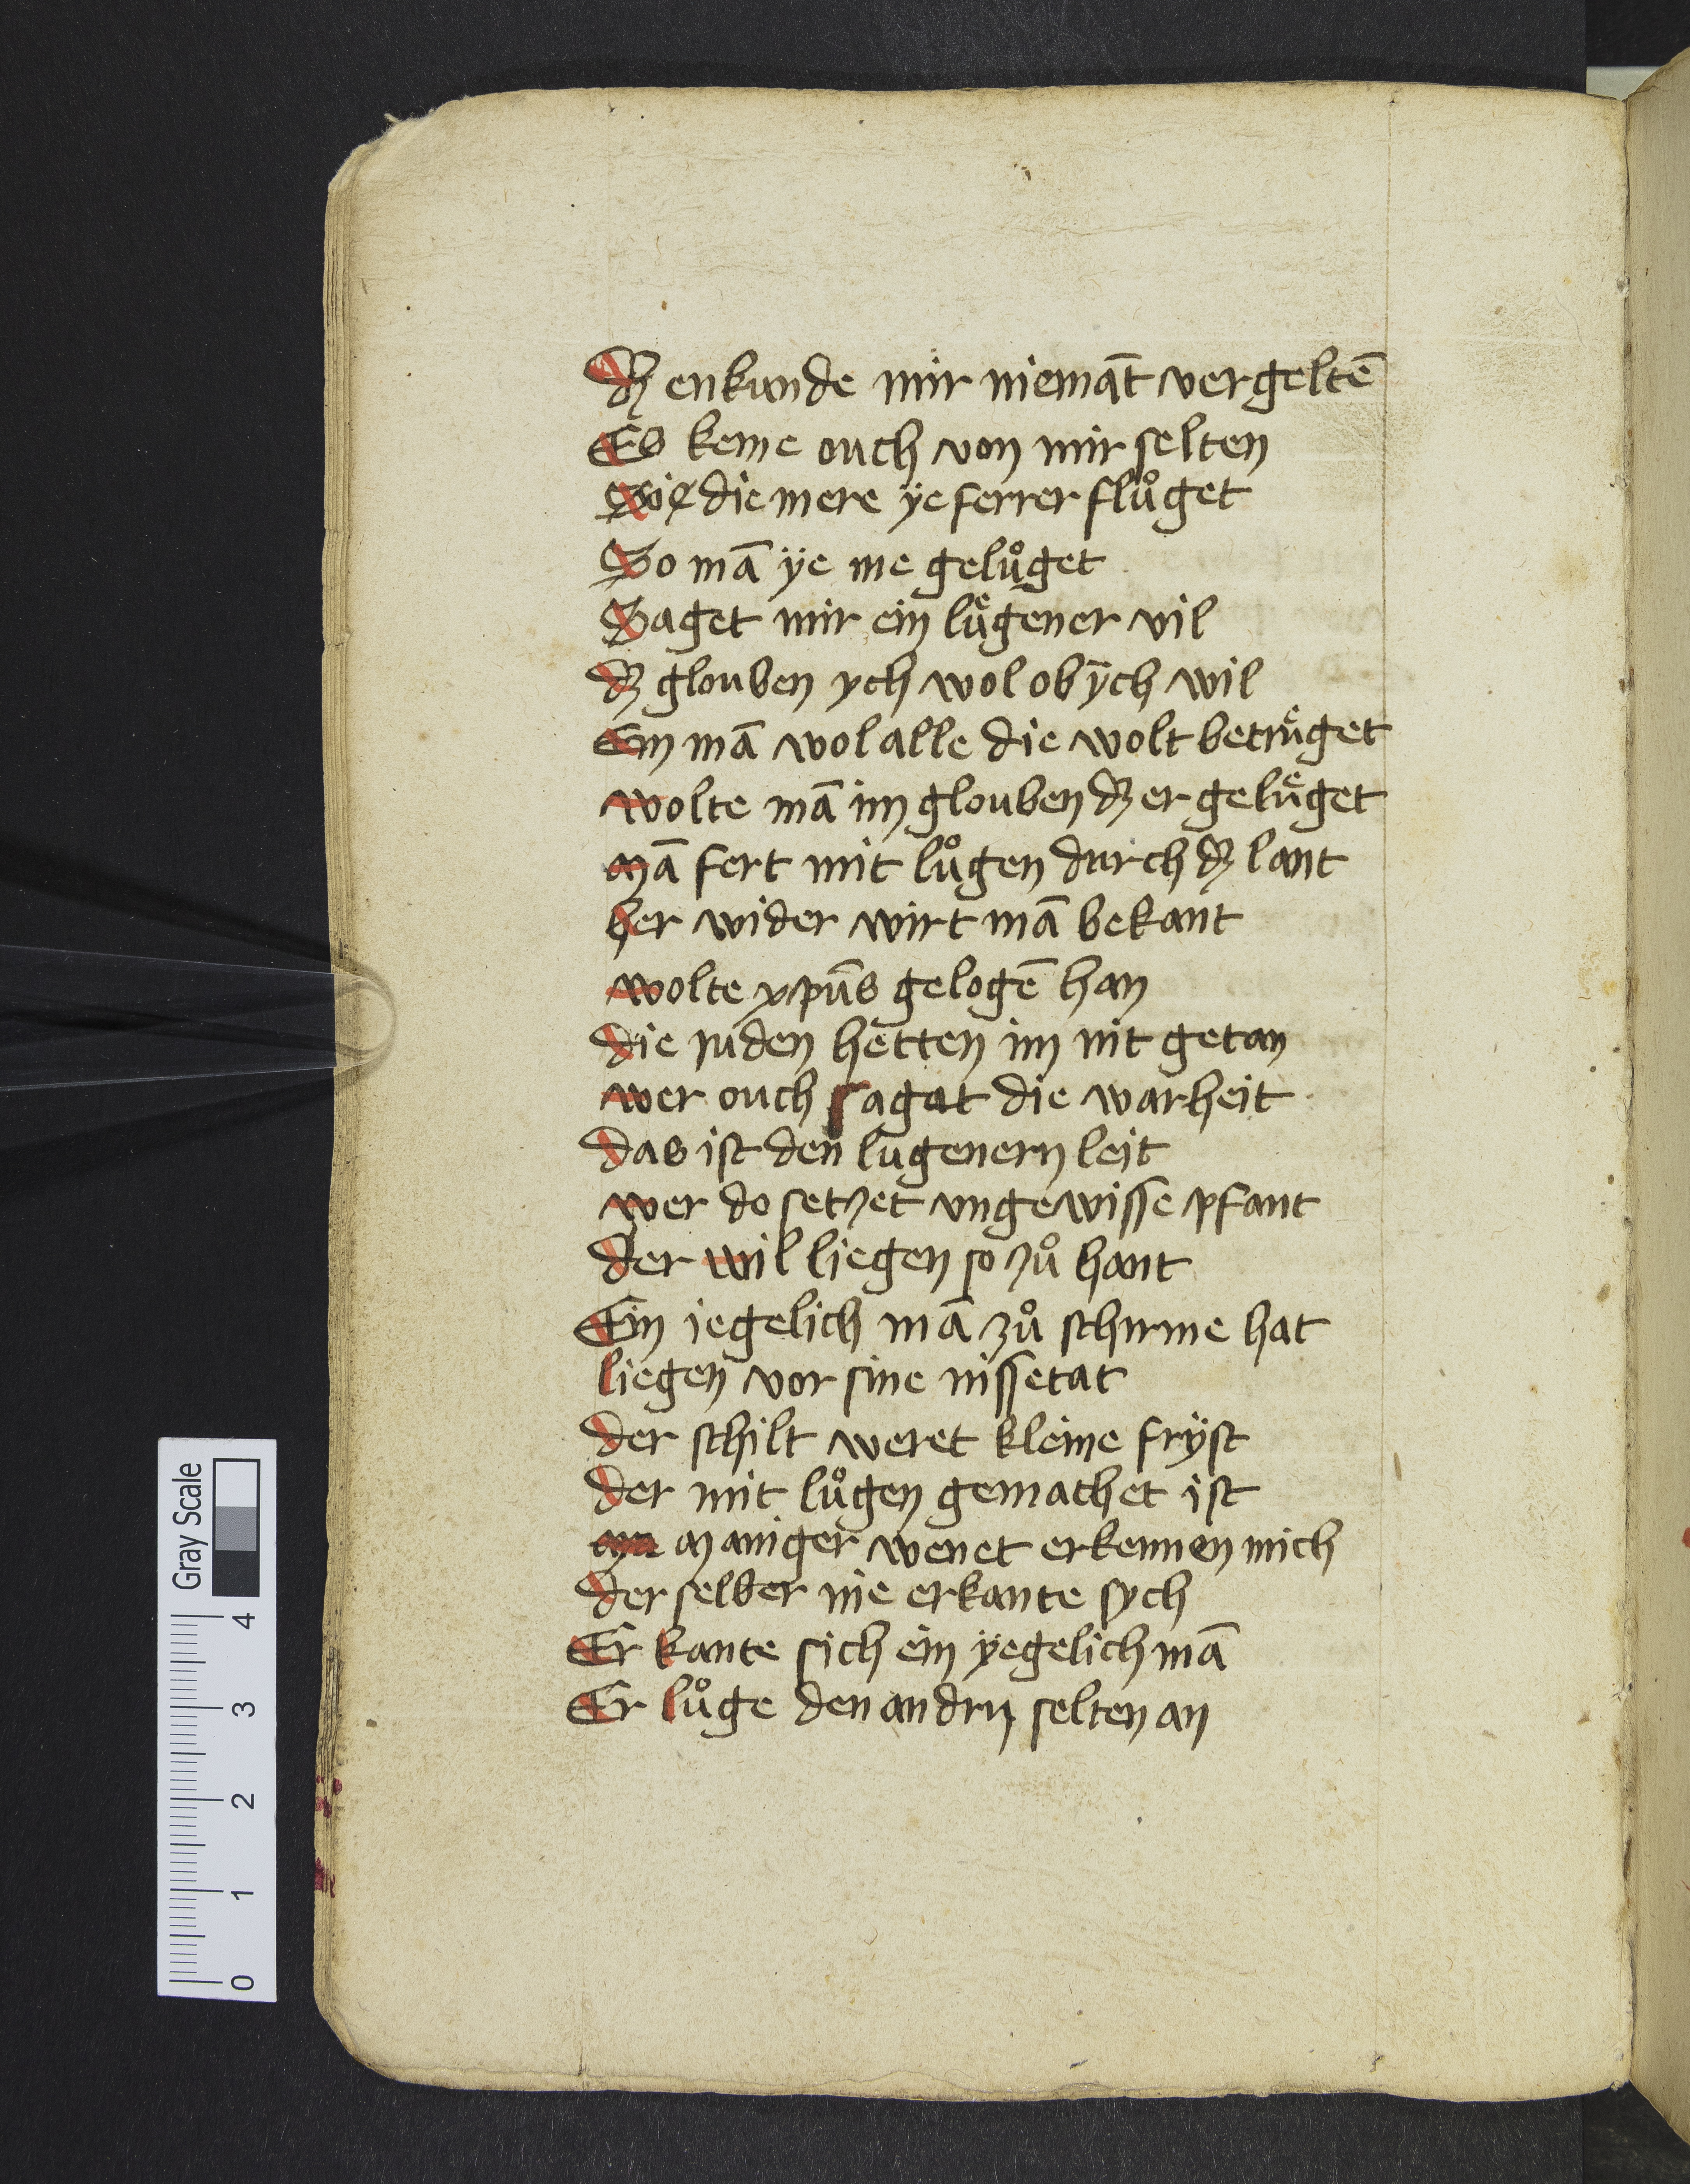 Dꝫ enkunde mir niemāt vergeltē
Es keme ouch von mir selten
So ie die mere ÿe ferrer flůget
So mā ÿe me gelůget
Saget mir ein lu̎gener vil
dꝫ glouben ych wol ob ÿch wil
Ein mā wol alle die wolt betruͤget
wolte mā im glouben dꝫ er geluͤget
Mā fert mit lůgen durch dꝫ lant
her wider wirt mā bekant
wolte xpūs gelogē han
die juden hetten im nit getan
wer ouch sagat die warheit
das ist den lugenern leit
wer do setzet ungewisse pfant
der wil liegen so zů hant
Ein iegelich mā zů schirme hat
liegen vor sine missetat
der schilt weret kleine frÿst
der mit lůgen gemachet ist
Maniger wenet erkennen mich
der selber nie erkante sych
Er kante sich ein ÿegelich mā
Er lůge den andrn selten an
Gray Scale
4
3
2
1
0